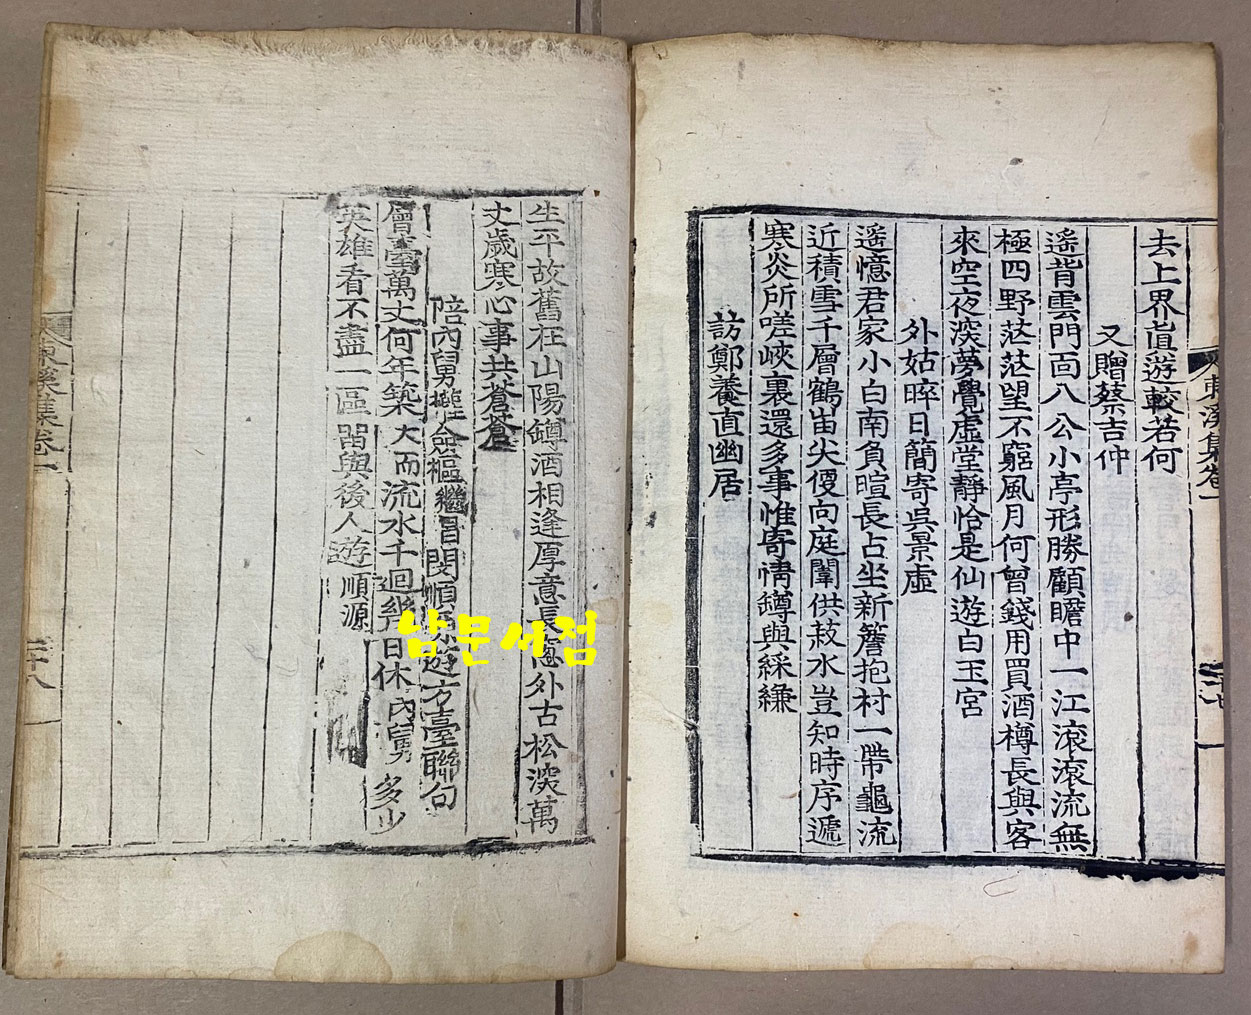 去上界眞遊較若何
又贈蔡吉仲
遙背雲門面八公小亭形勝顧瞻中一江滾滾流無
極四野茫茫望不窮風月何曾錢用買酒樽長與客
來空夜深夢覺虛堂靜恰是仙遊白玉宮
外姑晬日簡寄吳景虛
遙憶君家小白南負暄長占坐新簷抱村一帶龜流
近積雪千層鶴出尖便向庭闈供菽水豈知時序遞
寒炎所嗟峽裏還多事惟寄淸罇與綵縑
訪鄭養直幽居
東溪集卷一
二十七
生平故舊在山陽罇酒相逢厚意長窓外古松深萬
丈歲寒心事共蒼蒼
陪內舅 繼昌閔順源遊方臺聯句
層臺萬丈何年築大而流水千迴幾日休內舅多少
英雄看不盡一區留與後人遊順源
東溪集卷一
二十八
남문서점